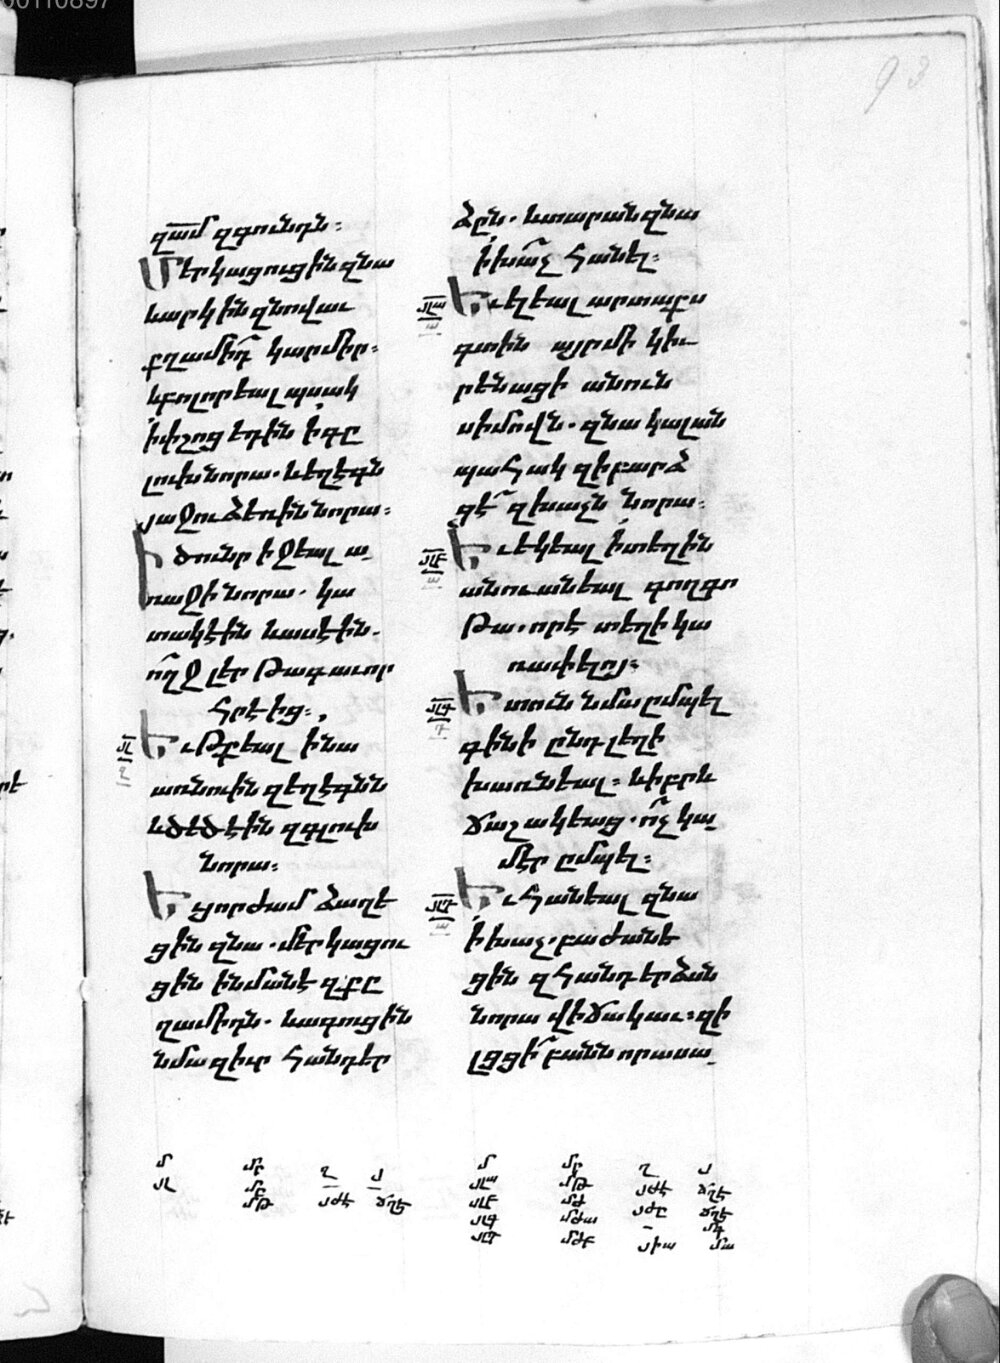 զամ զգունդն։
Մերկացուցին զնա
և արկին զնովաւ
քղամիդ կարմիր։
և բոլորեալ պսակ
ի փշոց եդին ի գը
լուխ նորա. և եղէգն
յաջու ձեռին նորա։
Ի ծունր իջեալ ա
ռաջի նորա. կա
տակէին և ասէին.
ո՛ղջ լեր թագաւոր
հրէից։
Եւ թքեալ ի նա
առնուին զեղէգնն
և ծեծէին զգլուխ
նորա։
Եւ յորժամ ձաղե
ցին զնա. մերկացու
ցին ի նմանէ զքը
ղամիդն. և ագուցին
նմա զիւր հանդեր
93
ձըն. և տարան զնա
ի խաչ հանել։
Եւ ելեալ արտաքս
գտին այր մի կիւ
րենացի անուն
սիմովն. զնա կալան
պահակ զի բարձ
ցէ զխաչն նորա։
Եւ եկեալ ի տեղին
անուանեալ գողգո
թա. որ է տեղի կա
ռափելոյ։
Ետուն նմա ըմպել
գինի ընդ լեղի
խառնեալ։ և իբրև
ճաշակեաց. ո՛չ կա
մէր ըմպել։
Եւ հանեալ զնա
ի խաչ. բաժանե
ցին զհանդերձան
նորա վիճակաւ։ զի
լցցի բանն որ ասա